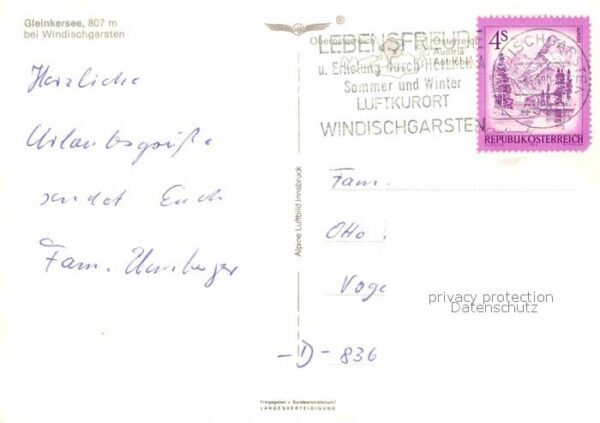 Gleinkersee, 807 m
bei Windischgarsten
Herzliche
Urlaubsgrüße
sendet Euch
Fam.
Alpine Luftbild Innsbruck
®
Oberösterreich
Österreich
Austria
Autriche
LEBENSFREUDE
u. Erholung durch HEILKLIMA
Sommer und Winter
LUFTKURORT
WINDISCHGARSTEN
4S
REPUBLIK ÖSTERREICH
Fam.
Otto
Voge
privacy protection
Datenschutz
-D- 836
Freigegeben v. Bundesministerium f.
LANDESVERTEIDIGUNG